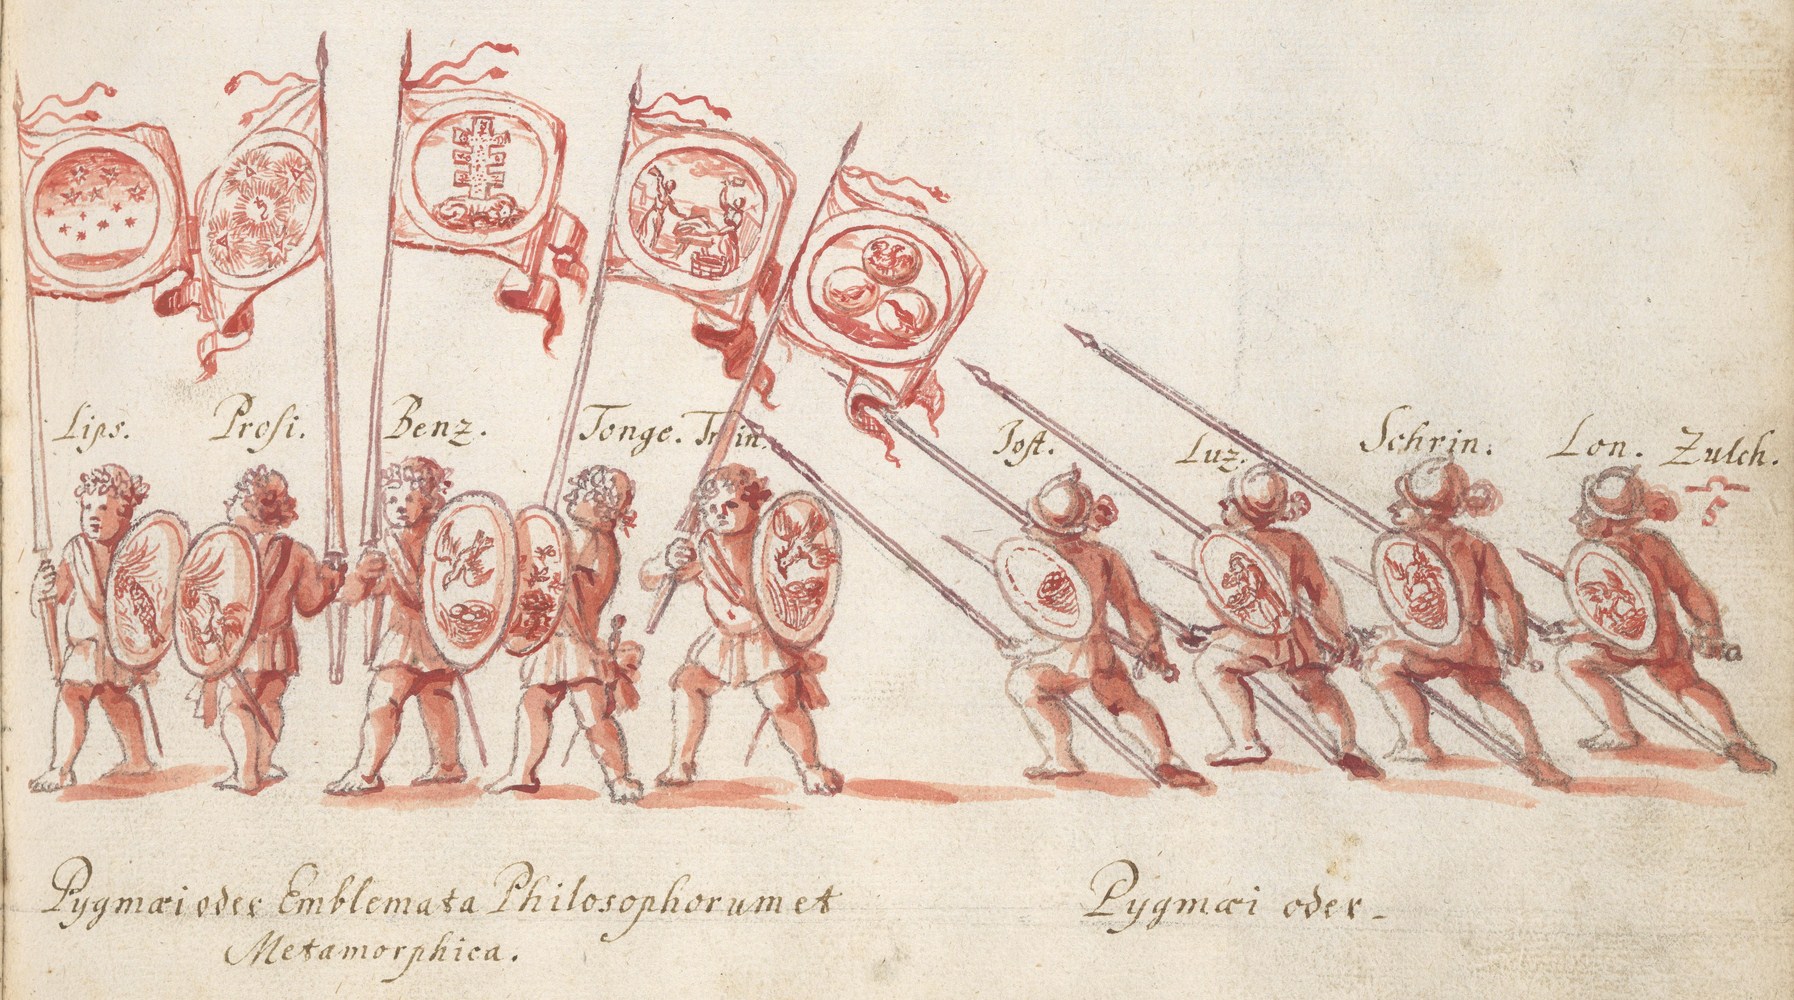 Lips. Profi. Benz. Tonge. Trin. Jost. Luz. Schrin. Lon. Zülch.
5
Pygmæi oder Emblemata Philosophorum et
Metamorphica.
Pygmæi oder